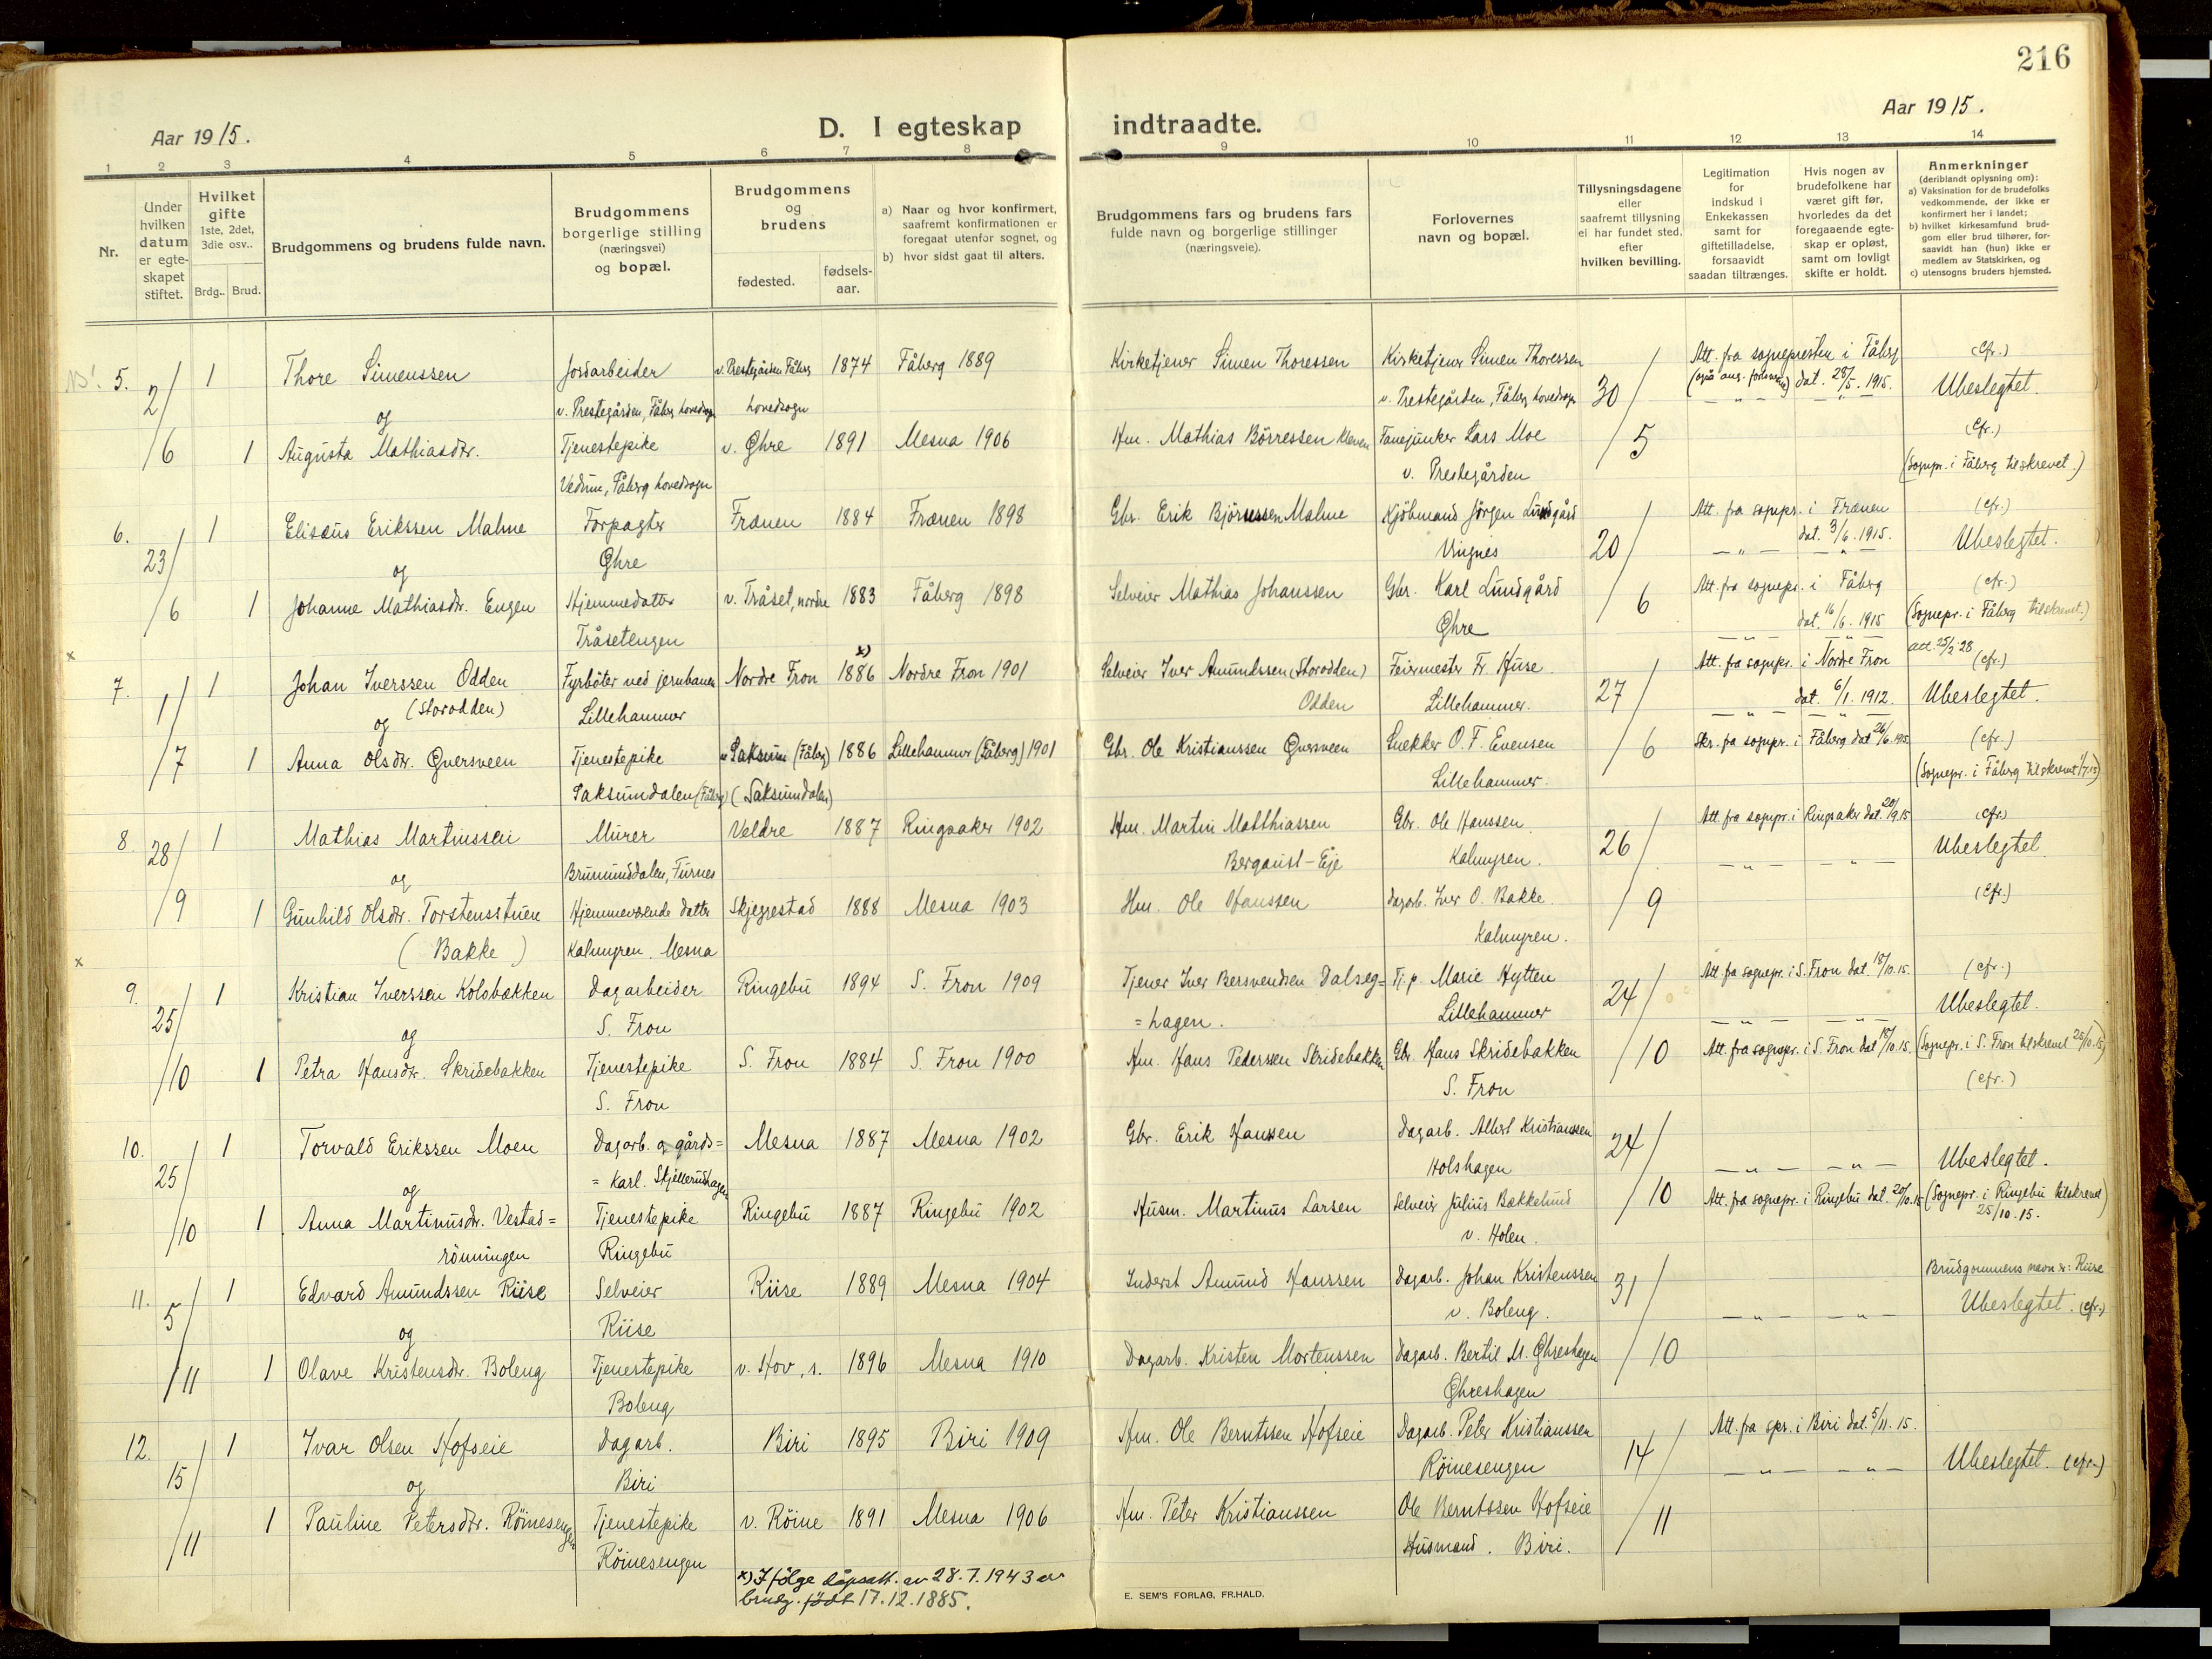 216
Aar 1915.
D. I egteskap indtraadte.
Aar 1915.
1 2 3 4 5 6 7 8 9 10 11 12 13 14
Nr.
Under hvilken datum er egteskapet stiftet.
Hvilket gifte 1ste, 2det, 3die osv..
Brdg.. Brud.
Brudgommens og brudens fulde navn.
Brudgommens borgerlige stilling (næringsvei) og bopæl.
Brudgommens og brudens
fødested. fødselsaar.
a) Naar og hvor konfirmert, saafremt konfirmationen er foregaat utenfor sognet, og
b) hvor sidst gaat til alters.
Brudgommens fars og brudens fars fulde navn og borgerlige stillinger (næringsveie).
Forlovernes navn og bopæl.
Tillysningsdagene eller saafremt tillysning ei har fundet sted, efter hvilken bevilling.
Legitimation for indskud i Enkekassen samt for giftetilladelse, forsaavidt saadan tiltrænges.
Hvis nogen av brudefolkene har været gift før, hvorledes da det foregaaende egteskap er opløst, samt om lovligt skifte er holdt.
Anmerkninger (deriblandt oplysning om):
a) Vaksination for de brudefolks vedkommende, der ikke er konfirmert her i landet;
b) hvilket kirkesamfund brudgom eller brud tilhører, forsaavidt han (hun) ikke er medlem av Statskirken, og
c) utensogns bruders hjemsted.
5. 2/ 1 Thore Simenssen Jordarbeider v. Prestegården Fåberg 1874 Fåberg 1889 Kirketjener Simen Thoressen Kirketjener Simen Thoressen 30/ Att. fra sognepresten i Fåbrg (cfr.)
og v. Prestegården, Fåberg hovedsogn hovedsogn v. Prestegården, Fåberg hovedsogn (også ang. forlovning) dat. 28/5. 1915. Ubeslegtet.
/6 1 Augusta Mathiasdtr. Tjenestepike v. Øhre 1891 Mesna 1906 Hm. Mathias Börressen Kleven Fanejunker Lars Moe /5 (Cfr.)
Vedum, Fåberg hovedsogn v. Prestegården (Sognpr. i Fåberg tilskrevet.)
6. 23/ 1 Elisæus Erikssen Malme Forpagter Frænen 1884 Frænen 1898 Gbr. Erik Björnssen Malme Kjöbmand Jörgen Lundgård 20/ Att. fra sognpr. i Frænen (cfr.)
og Øhre Vingnes dat. 3/6. 1915. Ubeslegtet.
/6 1 Johanne Mathiasdtr. Engen Hjemmedatter v. Tråset, nordre 1883 Fåberg 1898 Selveier Mathias Johanssen Gbr. Karl Lundgård /6 Att. fra sognepr. i Fåberg (cfr.)
Tråsetengen Øhre dat. 16/6. 1915 (Sognepr. i Fåberg tilskrevet.)
x x) att. 25/2 28
7. 1/ 1 Johan Iverssen Odden Fyrböter ved jernbanen Nordre Fron 1886 Nordre Fron 1901 Selveier Iver Amundssen (Storodden) Feiermester Fr. Huse. 27/ Att. fra sognpr. i Nordre Fron (cfr.)
(Storodden) og Lillehammer Odden Lillehammer. dat. 6/1. 1912. Ubeslegtet.
/7 1 Anna Olsdtr. Qversveen Tjenestepike v. Saksum (Fåberg) 1886 Lillehammer (Fåberg) 1901 Gbr. Ole Kristianssen Qversveen Snekker O. F. Evensen /6 Skr. fra sognpr. i Fåberg dat 26/6. 1915 (cfr.)
Saksumdalen (Fåberg) (Saksumdalen) Lillehammer. (Sognepr. i Fåberg tilskrevet 1/7.15)
8. 28/ 1 Mathias Martinssen Murer Veldre 1887 Ringsaker 1902 Hm. Martin Matthiassen Gbr. Ole Hanssen 26/ Att. fra sognpr. i Ringsaker dat. 20/9.15 (cfr.)
og Brumunddalen, Furnes Bergqvist-Eje Kalungen. Ubeslegtet
/9 1 Gunhild Olsdtr. Torstensstuen Hjemmeværende datter Skjeggestad 1888 Mesna 1903 Hm. Ole Hanssen Dagarb. Iver O. Bakke. /9 (cfr.)
(Bakke) Kalungen. Mesna Kalungen.
x
9. 25/ 1 Kristian Iverssen Kolobekken Dagarbeider Ringebu 1894 S. Fron 1909 Tjener Iver Bersvendsen Dalseg= Tj. p. Marie Hytten 24/ Att. fra sognepr. i S. Fron dat. 18/10.15. (cfr.)
og S. Fron =hagen. Lillehammer Ubeslegtet.
/10 1 Petra Hansdtr. Skridebakken Tjenestepike S. Fron 1884 S. Fron 1900 Hm. Hans Pederssen Skridebakken Gbr. Hans Skridebakken /10 Att. fra sognepr. i S. Fron dat 18/10.15. (Sognepr. i S. Fron tilskrevet 25/10.15)
S. Fron S. Fron (cfr.)
10. 25/ 1 Torvald Erikssen Moen Dagarb. og gårds= Mesna 1887 Mesna 1902 Gbr. Erik Hanssen Dagarb. Albert Kristianssen 24/
og =karl. Skjellerudhagen Holshagen Ubeslegtet.
/10 1 Anna Martinusdtr. Vestad= Tjenestepike Ringebu 1887 Ringebu 1902 Husm. Martinus Larsen Selveier Julius Bækkelund /10 Att. fra sognepr. i Ringebu dat. 20/10.15 (Sognepr. i Ringebu tilskrevet
rönningen Ringebu v. Holen. 25/10.15.
11. 5/ 1 Edvard Amundssen Riise Selveier Riise 1889 Mesna 1904 Inderst Amund Hanssen Dagarb. Johan Kristenssen 31/ Brudgommens navn er: Riise
og Riise v. Boleng. Ubeslegtet. (cfr.)
/11 1 Olave Kristensdtr. Boleng Tjenestepike v. Hov, s. 1896 Mesna 1910 Dagarb. Kristen Mortenssen Dagarb. Bertil M. Øhreshagen /10
Boleng Øhreshagen
12. 15/ 1 Ivar Olsen Hofseie Dagarb. Biri 1895 Biri 1909 Hm. Ole Berntssen Hofseie Dagarb. Peter Kristianssen 14/ Att. fra spr. i Biri dat. 5/11. 15.
og Biri Röinesengen Ubeslegtet. (cfr.)
/11 1 Pauline Petersdtr. Röinesengen Tjenestepike v. Röine 1891 Mesna 1906 Hm. Peter Kristianssen Ole Berntssen Hofseie /11
Röinesengen Husmand. Biri.
x) Ifölge dåpsatt. av 28.7.1943 er
brudg. födt 17.12.1885.
E. SEM'S FORLAG, FR.HALD.